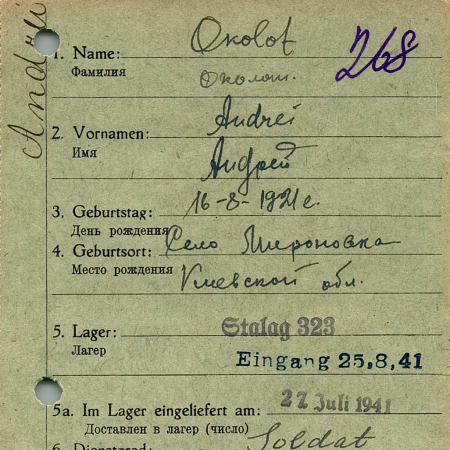 Andrei
1. Name: Okolot 268
Фамилия Околот.
2. Vornamen: Andrei
Имя Андрей
3. Geburtstag: 16-8-1921 г.
День рождения
4. Geburtsort: Село Мироновка
Место рождения Киевской обл.
5. Lager: Stalag 323
Лагер Eingang 25,8,41
5a. Im Lager eingeliefert am: 27 Juli 1941
Доставлен в лагер (число)
6. Dienstgrad: Soldat